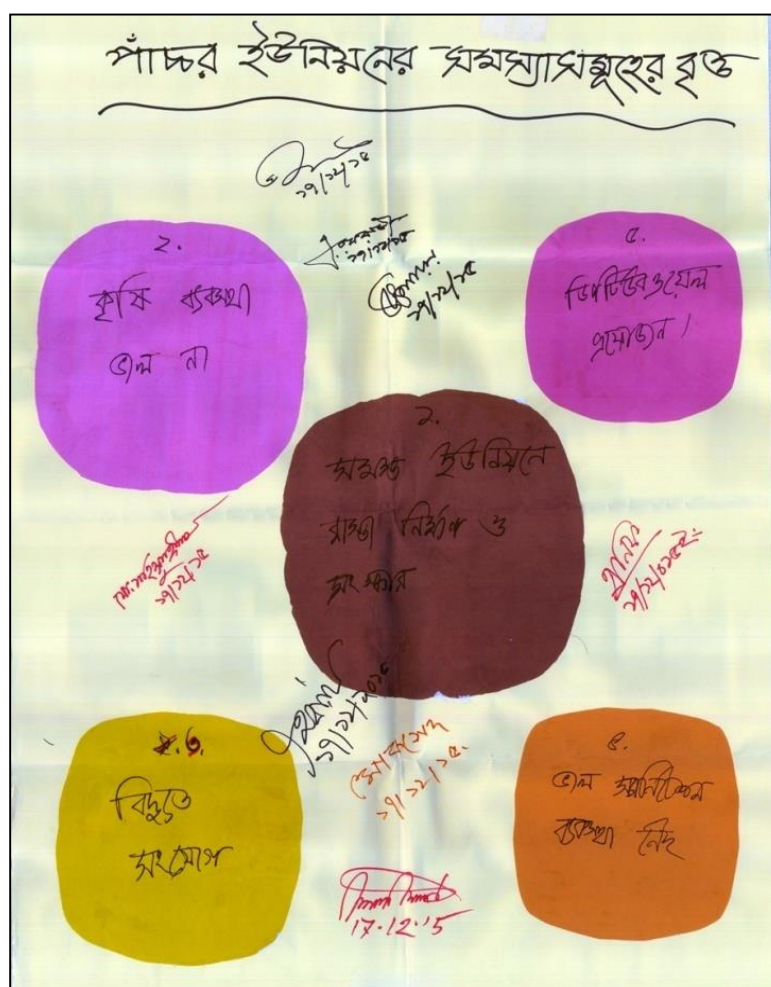 পাঁচ্চর ইউনিয়নের সমস্যাসমূহের বৃত্ত
১৭/১২/১৫
১৭/১২/১৫
১৭/১২/১৫
২.
কৃষি ব্যবস্থা
ভাল না
৫.
ডিপটিউবওয়েল
প্রয়োজন।
১.
সমস্ত ইউনিয়নে
রাস্তা নির্মাণ ও
সংস্কার
১৭/১২/১৫
১৭/১২/২০১৫
১৭/১২/২০১৫
৩.
বিদ্যুত
সংযোগ
১৭/১২/১৫
৪.
ভাল স্যানিটেশন
ব্যবস্থা নেই
17.12.15